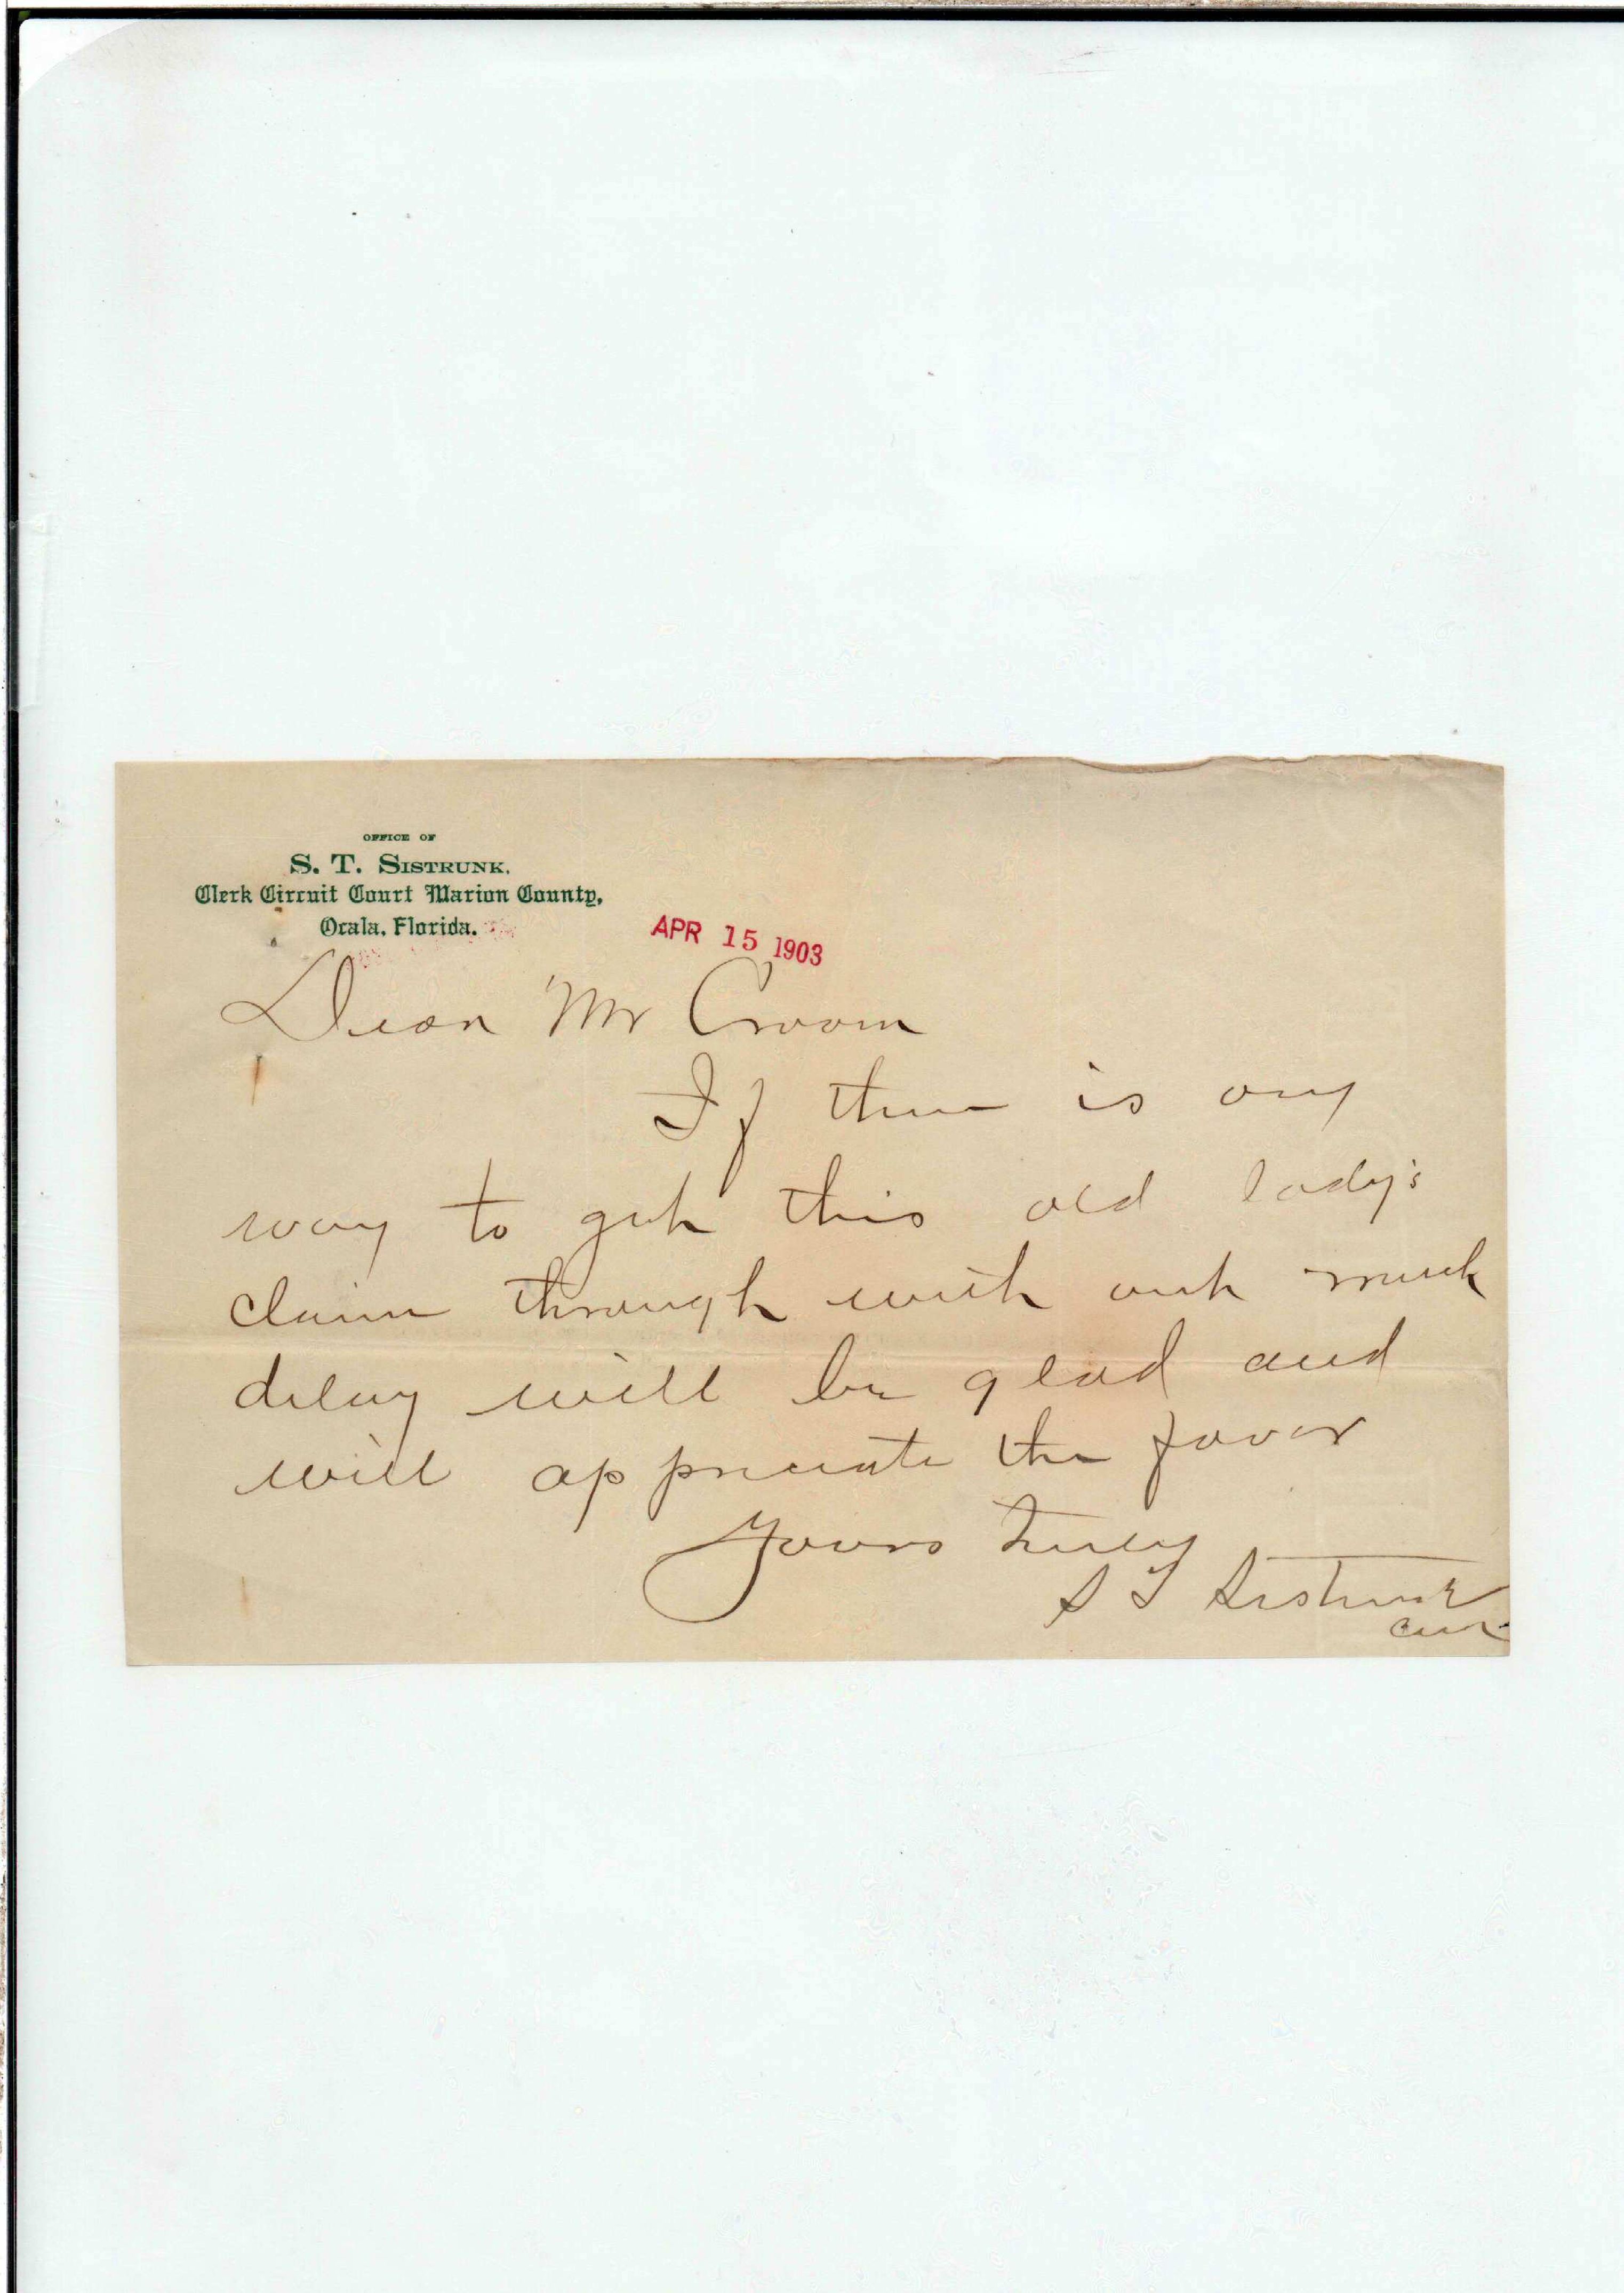 OFFICE OF
S. T. SISTRUNK,
Clerk Circuit Court Marion County,
Ocala, Florida.
APR 15 1903
Dear Mr Croom
If there is any
way to get this old lady's
claim through with out much
delay will be glad and
will appreciate the favor
Yours Truly
S T Sistrunk